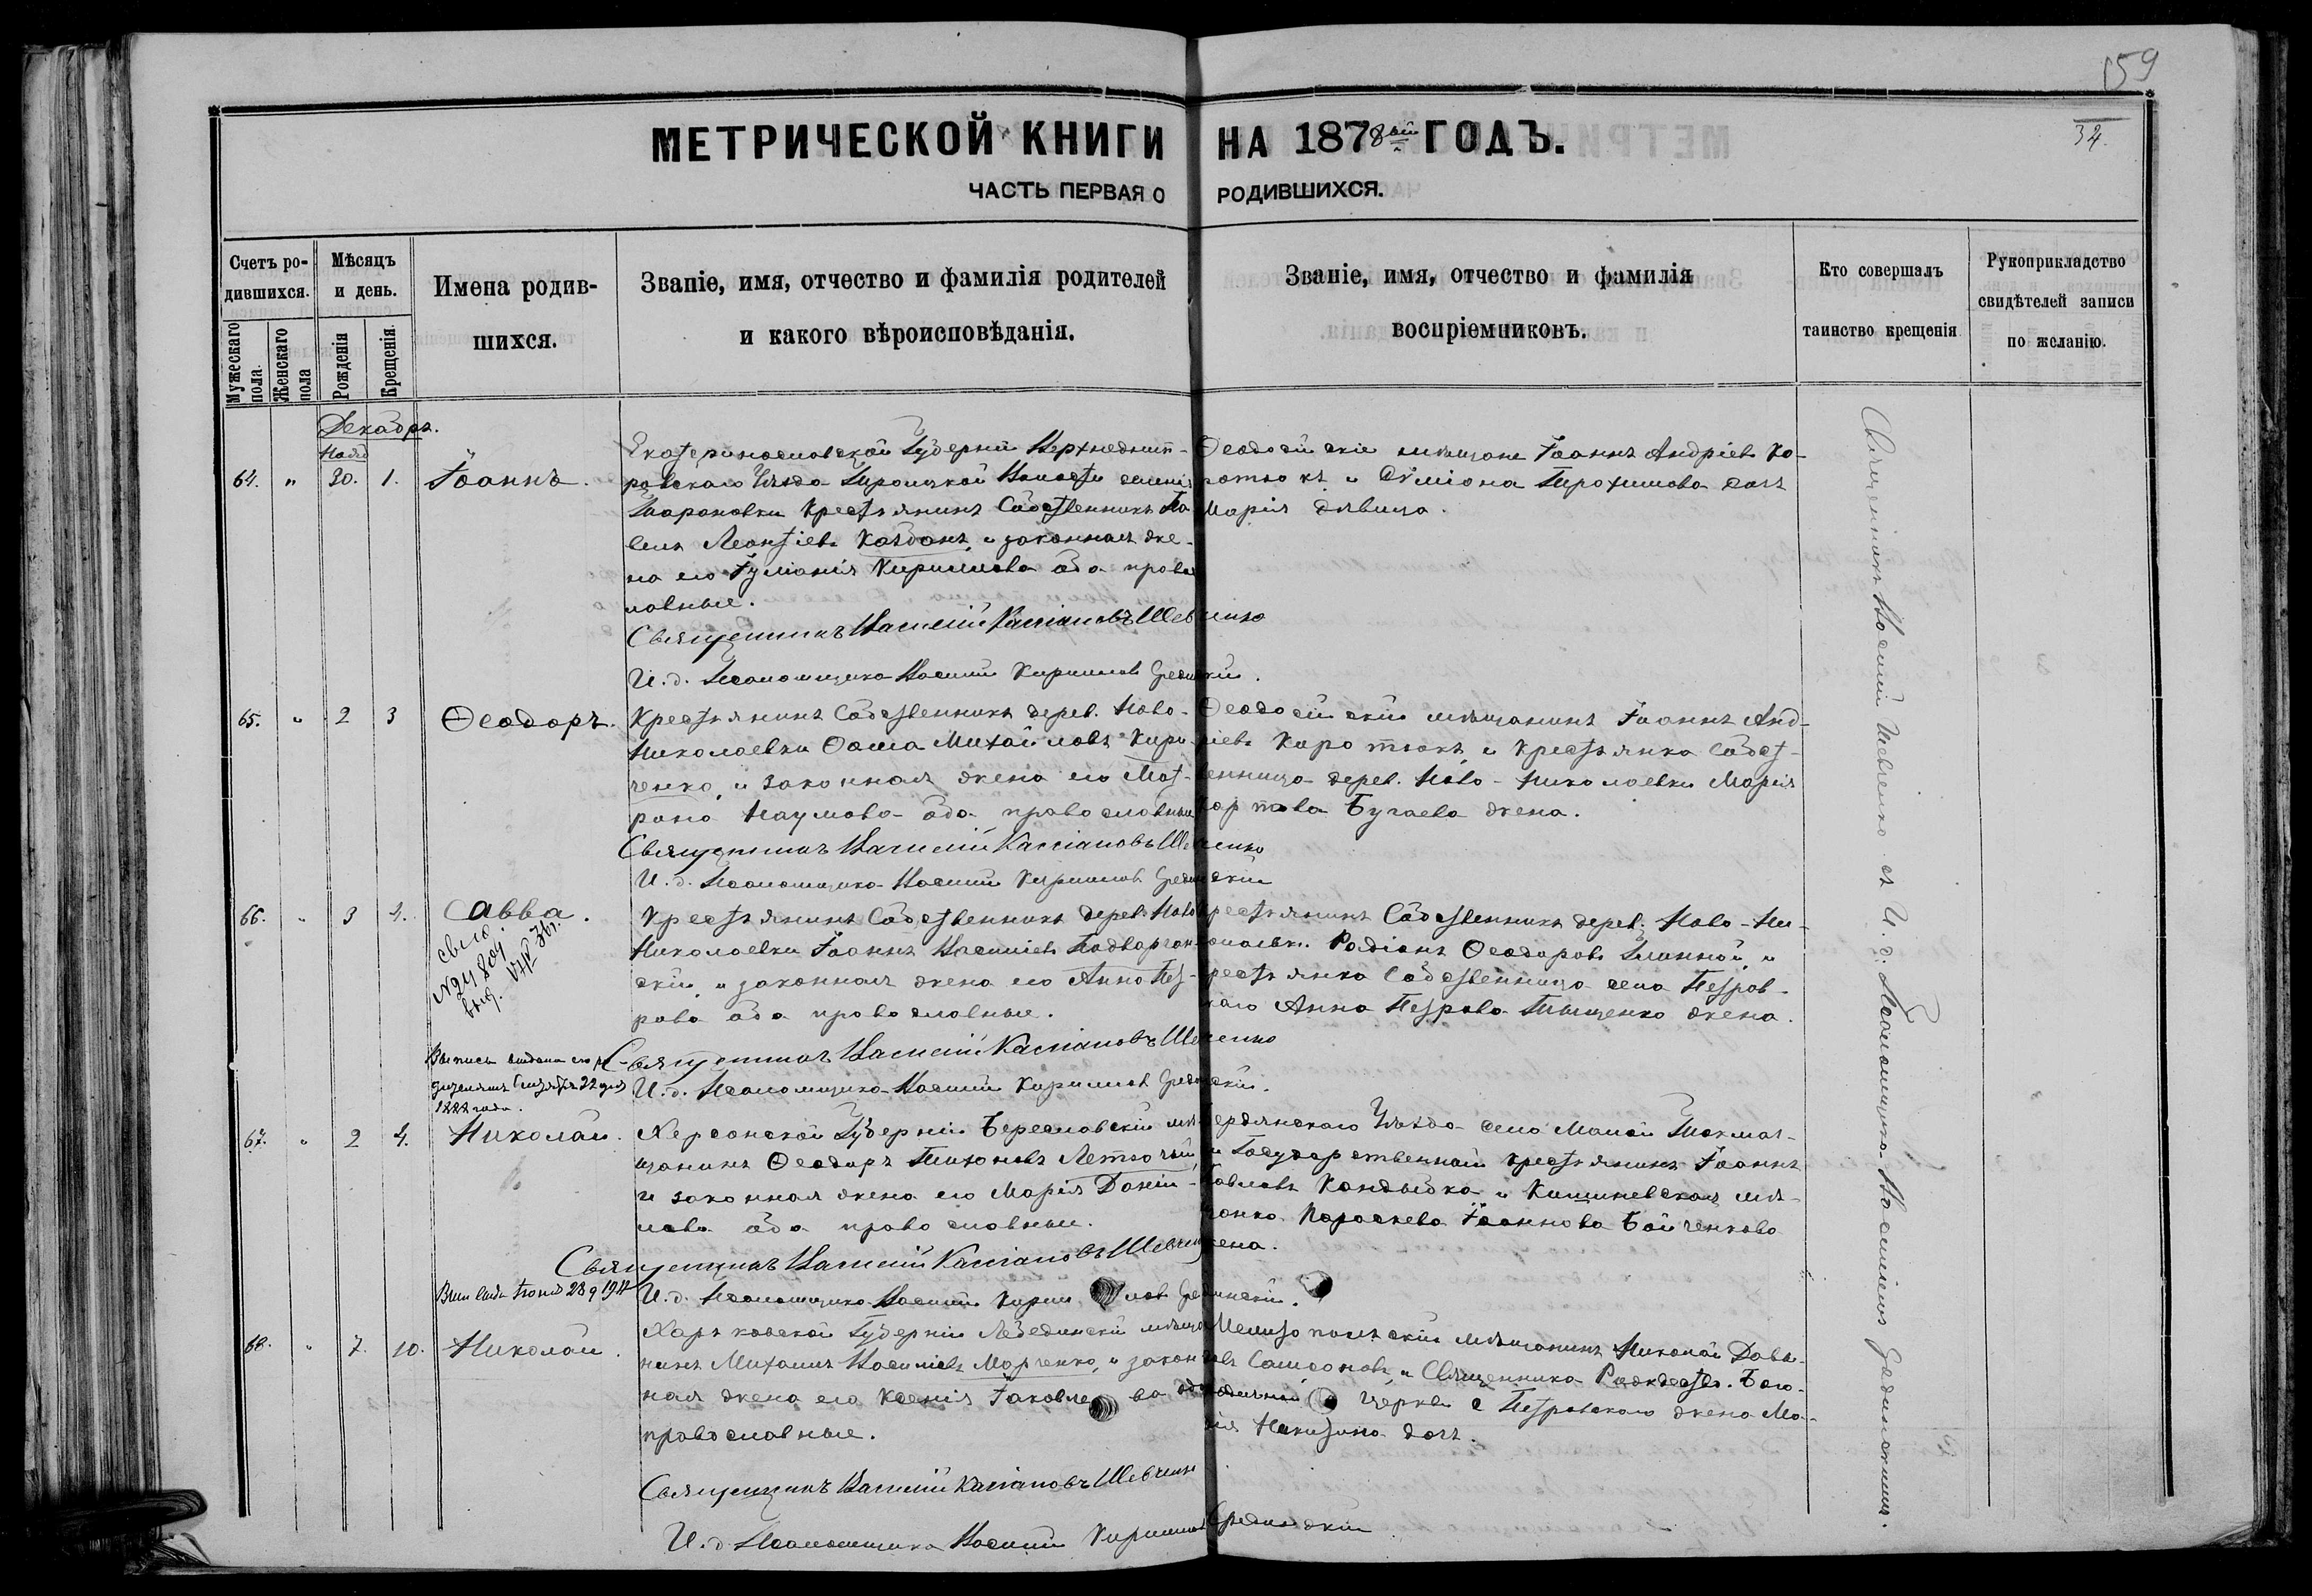 159
34.
МЕТРИЧЕСКОЙ КНИГИ НА 1878ый ГОДЪ.
ЧАСТЬ ПЕРВАЯ О РОДИВШИХСЯ.
Счетъ ро-
дившихся.
Мужескаго
пола.
Женскаго
пола
Мѣсяцъ
и день.
Рожденія
Крещенія.
Имена родив-
шихся.
Званіе, имя, отчество и фамилія родителей
и какого вѣроисповѣданія.
Званіе, имя, отчество и фамилія
воспріемниковъ.
Кто совершалъ
таинство крещенія
Рукоприкладство
свидѣтелей записи
по желанію.
Декабрь.
Нояб
64. " 30. 1. Іоаннъ.
Екатеринославской Губерніи Верхнеднѣп-
ровскаго Уѣзда Волости
Крестьянинъ Собственникъ Па
велъ Леонтіевъ и законная же-
на его Іуліанія Кириллова оба право
славные.
Священникъ Василій Кассіановъ Шевченко
И. д. Псаломщика Василій Кирилловъ
Ѳеодосійскіе мѣщане Іоаннъ Андріевъ Ко-
ротюкъ и Симіона Трохимова дочь
Марія дѣвица.
65. " 2 3 Ѳеодоръ.
Крестьянинъ Собственникъ дерев. Ново-
Николаевки Ѳома Михайловъ Кири-
ченко, и законная жена его Мат-
рона Наумова оба православные
Священникъ Василій Кассіановъ Шевченко
И. д. Псаломщика Василій Кирилловъ
Ѳеодосійскій мѣщанинъ Іоаннъ Анд-
ріевъ Коротюкъ и Крестьянка Собст-
венница дерев. Ново-Николаевки Марія
Карпова Бугаева жена.
66. " 3 4. Савва.
Крестьянинъ Собственникъ дерев. Ново
Николаевки Іоаннъ Василіевъ
скій, и законная жена его Анна Пет-
рова оба православные.
Священникъ Василій Кассіановъ Шевченко
И. д. Псаломщика Василій Кирилловъ
Крестьянинъ Собственникъ дерев. Ново-Ни-
колаевк. Родіонъ Ѳеодоровъ и
Крестьянка Собственница села Петров-
скаго Анна Петрова Тищенко жена.
67. " 2 4. Николай.
Херсонской Губерніи Бериславскій мѣ-
щанинъ Ѳеодоръ Тихоновъ Летючій,
и законная жена его Марія Даніи-
лова оба православные.
Священникъ Василій Кассіановъ Шевченко
И. д. Псаломщика Василій Кирилловъ
Бердянскаго Уѣзда села Малой Токмач-
и Государственный крестьянинъ Іоаннъ
Павловъ Кандыбка и Кишиневская мѣ-
щанка Параскева Іоаннова Бойченкова
жена.
68. " 7. 10. Николай.
Харьковской Губерніи Лебединскій мѣща
нинъ Михаилъ Василіевъ Марченко, и закон
ная жена его Ксенія Іаковлева оба
православные.
Священникъ Василій Кассіановъ Шевченко
И. д. Псаломщика Василій Кирилловъ
Мелитопольскій мѣщанинъ Николай Давы-
довъ Самсоновъ, и Священника Рождество-Бого-
родичной церкви с Петровскаго жена Ма-
рія Никитина дочь.
Священникъ Василій Шевченко съ И. д. Псаломщика Василіемъ